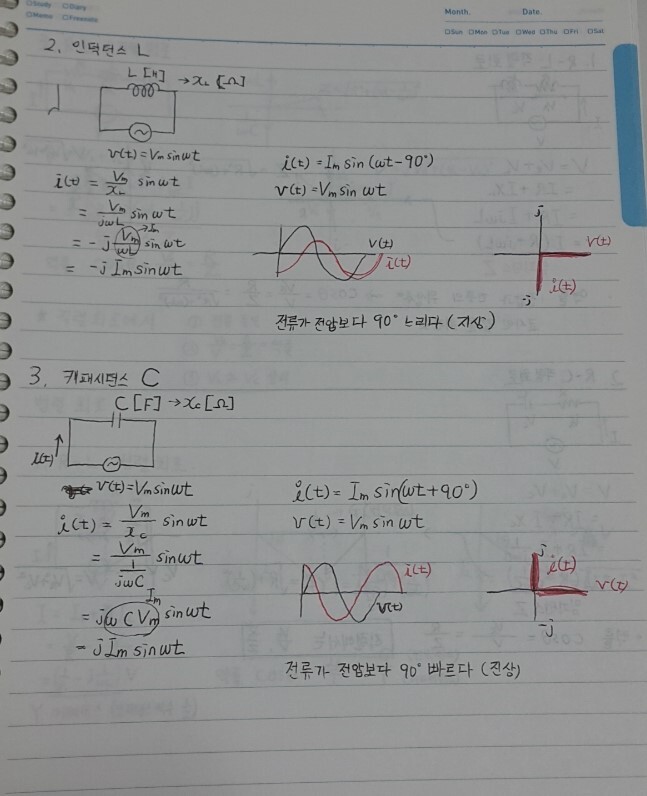 Study Diary
Memo Freenote
Month. Date.
Sun Mon Tue Wed Thu Fri Sat
2. 인덕턴스 L
L [H] → xL [Ω]
v(t) = Vm sin ωt
i(t) = Vm/xL sin ωt
= Vm/jωL sin ωt
= -j Vm/ωL sin ωt → Im
= -j Im sin ωt
i(t) = Im sin (ωt - 90°)
v(t) = Vm sin ωt
v(t)
i(t)
j
v(t)
-j
i(t)
전류가 전압보다 90° 느리다 (지상)
3. 캐패시턴스 C
C [F] → xc [Ω]
i(t)
v(t) = Vm sin ωt
i(t) = Vm/xc sin ωt
= Vm/(1/jωC) sin ωt
= jωCVm sin ωt Im
= jIm sin ωt
i(t) = Im sin(ωt + 90°)
v(t) = Vm sin ωt
i(t)
v(t)
j
i(t)
v(t)
-j
전류가 전압보다 90° 빠르다 (진상)